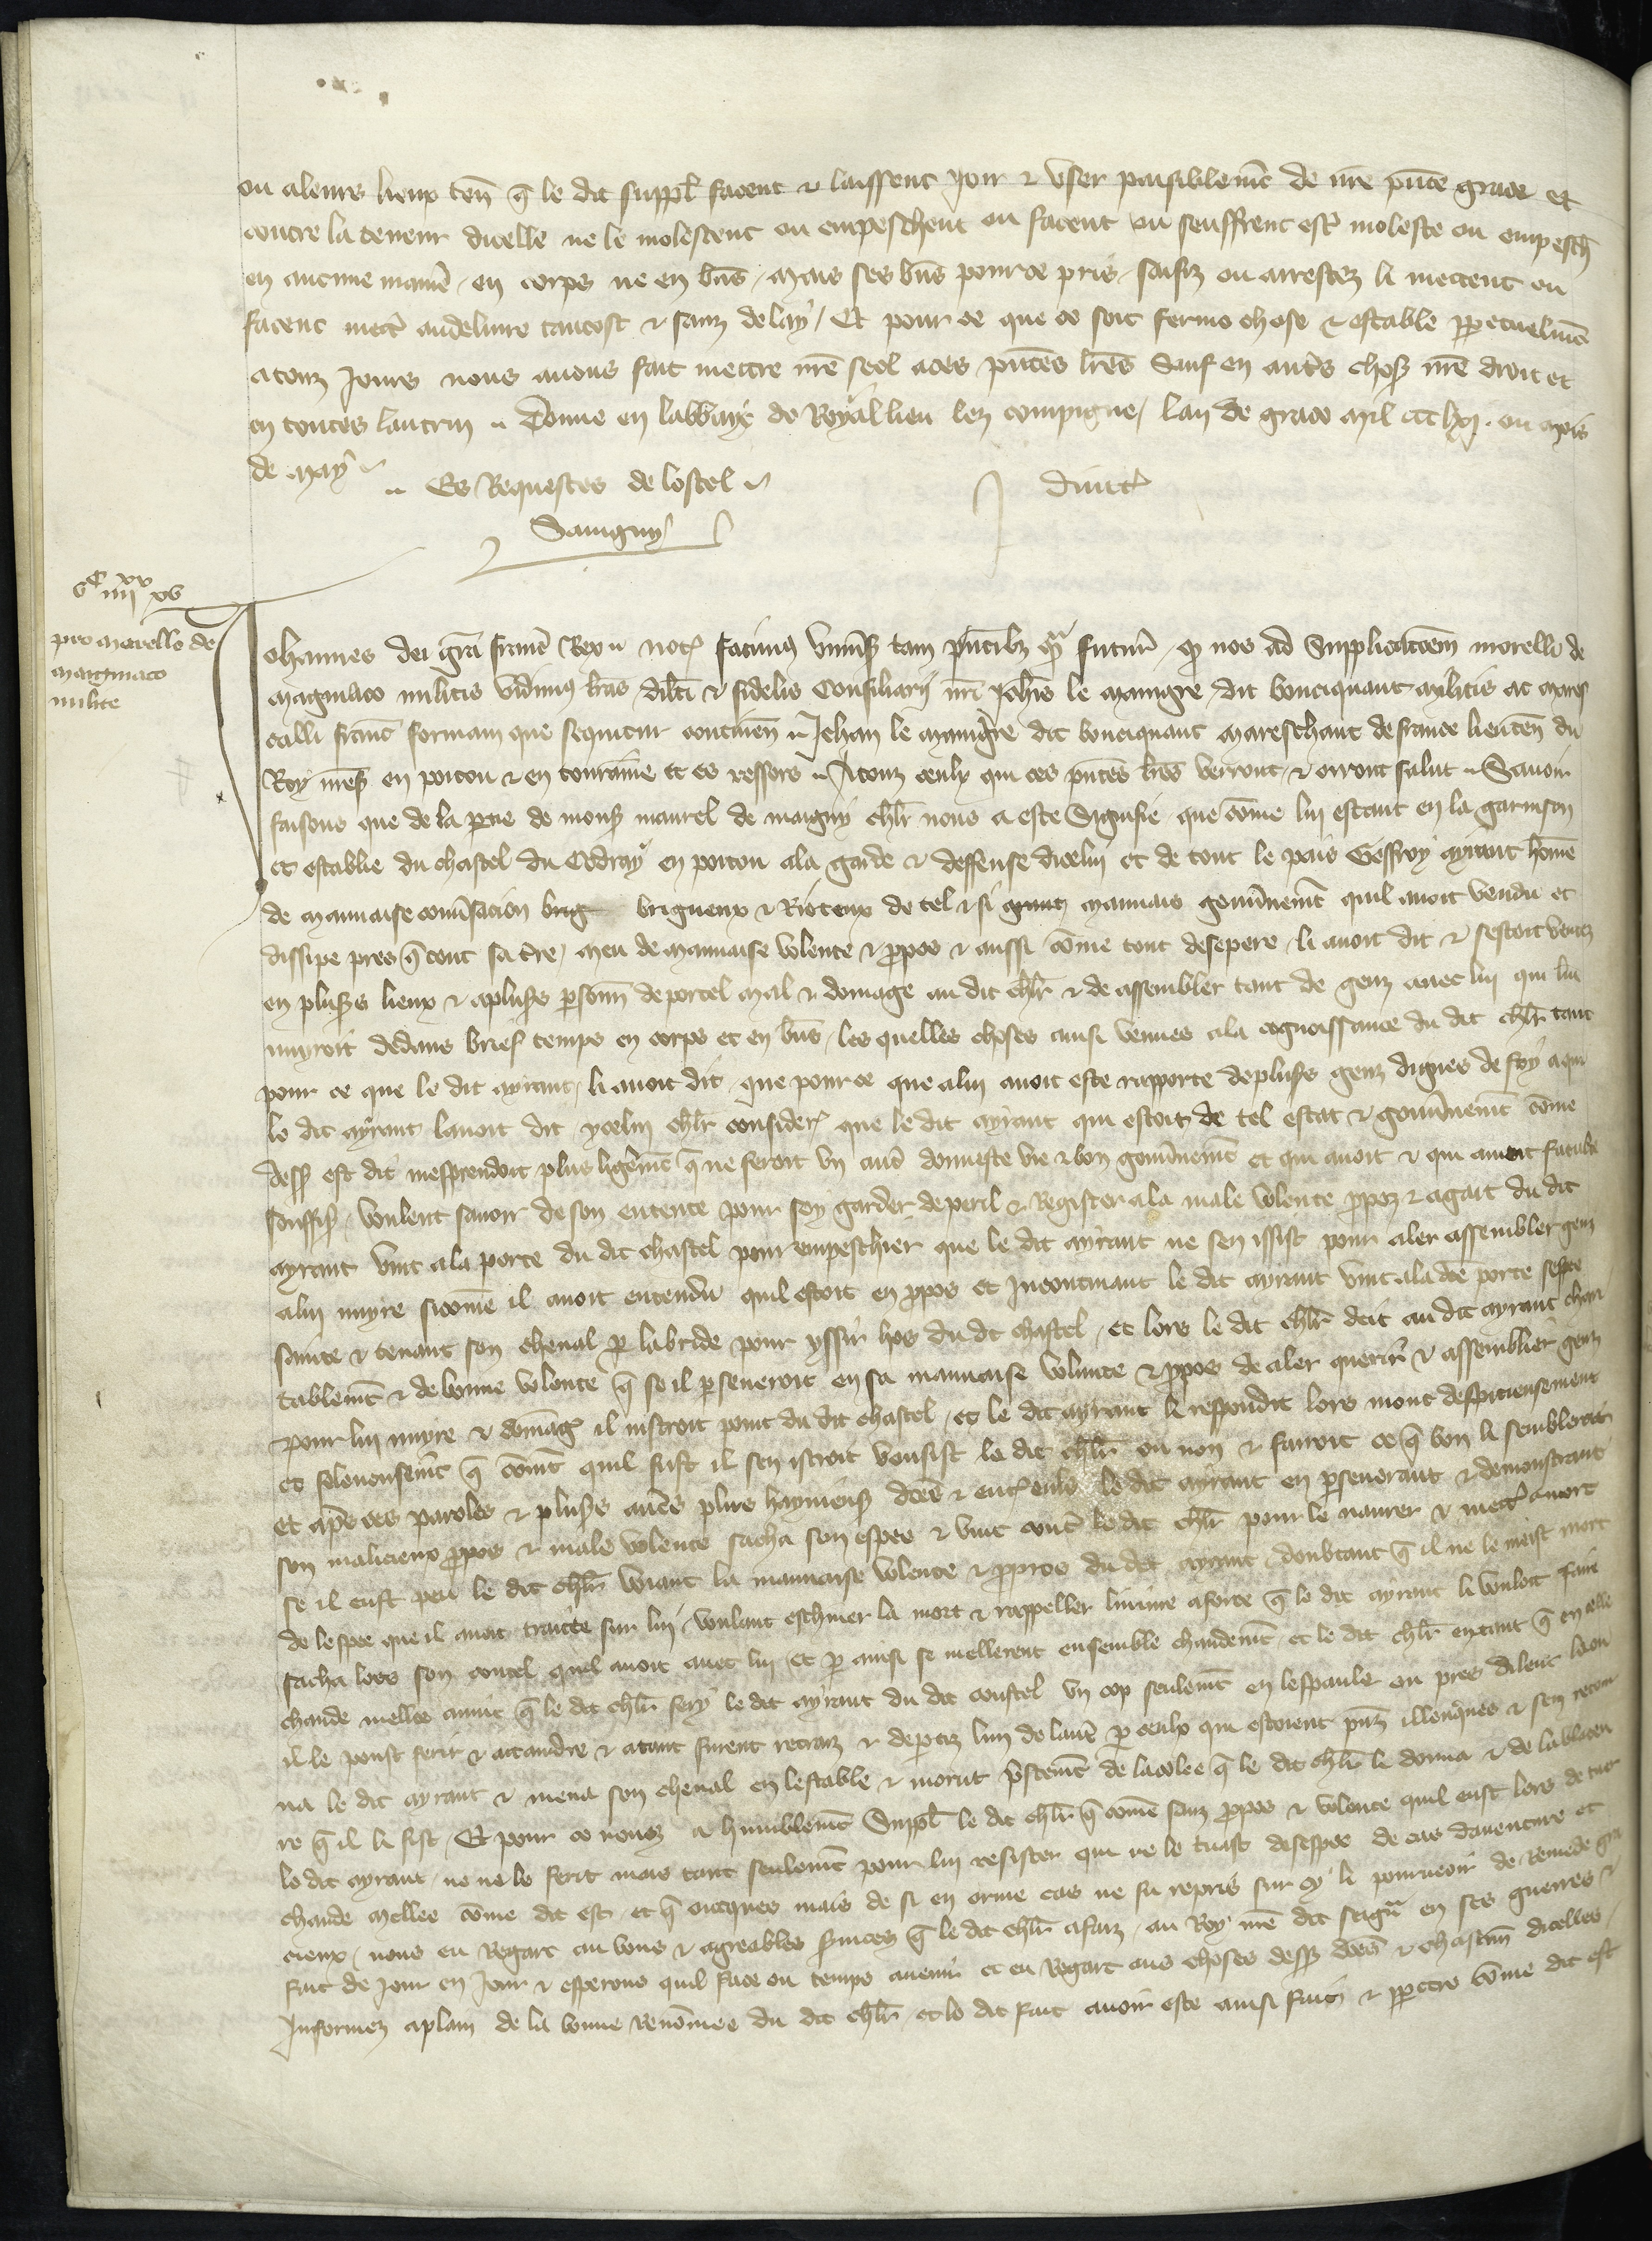 ou aleurs lieux ten̄ q̄ le dit suppl̄ facent & laissent Joir & user paisiblem̄t de nr̄e p̄nte grace et
contre la teneur dicelle ne le molestent ou empeschent ou facent ou seuffrent estr̄ moleste ou empesch̄
en aucune manie᷑ en corps ne en bn̄s mais ses bn̄s pour ce pris saisiz ou arrestez li mettent ou
facent mett᷑ au delivre tantost & sanz delay Et pour ce que ce soit ferme chose & estable ꝑpetuelm̄t
a touz Jours nous avons fait mettre nr̄e seel a ces p̄ntes lr̄es Sauf en autr̄s choses nr̄e droit et
en toutes lautruy Donne en labbaye de Royallieu lez compigne lan de grace mil ccc lxj ou mois
de may
Es Requestes de lostel
duitt᷑
Savigny
vᶜ iiijˣˣ xv
pro morello de
magniaco
milite
Johannes dei gr̄a franc᷑ Rex Not᷑ facimus univ̄sis tam p̄ntibz qᵃm futuris ꝙ nos ad supplicac̄oem morelli de
magniaco militis vidimus lr̄as dil̄ti & fidelis consiliarij nr̄i Joh̄is le maingre dit bouciquaut militis ac mares
calli franc᷑ formam que sequitur continen̄ Jehan le maingre dit bouciquaut mareschaut de france lieuten̄ du
Roy mess᷑ en poitou & en touraine et es ressors A touz ceulx qui ces p̄ntes lr̄es verront & orront salut Savoir
faisons que de la ꝑtie de mons᷑ maurel de maigny ch̄lr nous a este signifie que cōme lui estant en la garnison
et establie du chastel du Codray en poitou a la garde & deffense dicelui et de tout le pais Geffroy ayraut hōme
de mauvaise conv̄sacion brig brigueux & Rioteux de tel & si mauvais gouv̄nem̄t quil avoit vendu et
dissipe pres q̄ tout sa tr̄e meu de mauvaise volente & ꝓpos & aussi cōme tout desepere li avoit dit & sestoit ventez
en plus᷑s lieux & a plus᷑s ꝑsonn̄ de porter mal & domage au dit ch̄lr & de assembler tant de genz avec lui qui lui
nuyroit dedans brief temps en corps et en bn̄s les quelles choses ainsi venues a la cognoissance du dit ch̄lr tant
pour ce que le dit ayraut li avoit dit que pour ce que a lui avoit este rapporte de plus᷑s genz dignes de foy a qui
le dit ayraut lavoit dit ycelui ch̄lr consider᷑ que le dit ayraut qui estoit de tel estat & gouv̄nem̄t cōme
dess᷑ est dit mesprendoit plus ligerem̄t q̄ ne feroit un aut᷑ donneste vie & bon gouv̄nem̄t et qui avoit & qui
souffis᷑ voulent savoir de son entente pour soy garder de peril & Resister a la male volente ꝓpoz & agait du dit
ayraut vint a la porte du dit chastel pour empeschier que le dit ayraut ne sen issist pour aler assembler genz
a lui nuyre si cōme il avoit entendu quil estoit en ꝓpos et Incontinant le dit ayraut vint a la dc̄e porte sespee
sainte & tenant son cheval ꝑ la bride pour yssir hos du dit chastel et lors le dit ch̄lr deit au dit ayraut chari
tablem̄t & de bonne volente q̄ se il ꝑseveroit en sa mauvaise volente & ꝓpos de aler querir & assemblier genz
pour lui nuyre & domag᷑ il nistroit point du dit chastel et le dit ayraut li respondit lors mout despiteusement
et felonneusem̄t q̄ com̄t quil fust il sen istroit vousist le dit ch̄lr ou non & fairoit ce q̄ bon li sembleroit
et apr̄s ces paroles & plus᷑s autr̄s plus hayneus᷑ dc̄es & ent᷑ eulx le dit ayraut en ꝑseverant & demonstrant
son malicieux ꝓpos & male volente sacha son espee & vint cont᷑ le dit ch̄lr pour le navrer & mett᷑ a mort
se il eust peu le dit ch̄lr voiant la mauvaise volente & ꝓpos du dit ayraut doubtant q̄ il ne le meist mort
de lespee que il avoit traicte sur lui voulant eschiver la mort & rappeller a force q̄ le dit ayraut li vouloit faire
sacha lors son coutel quil avoit avec lui et ꝑ ainsi se mellerent ensemble chaudem̄t et le dit ch̄lr en tant q̄ en celle
chaude mellee avint q̄ le dit ch̄lr fery le dit ayraut du dit coustel un cop seulem̄t en lespaule ou pres dileuc la ou
il le poust ferir & attaindre & atant furent retraiz & departiz lun de laut᷑ ꝑ ceulx qui estoient p̄nz illeucques & sen retour
na le dit ayraut & mena son cheval en lestable & morut p̄stem̄t de la colee q̄ le dit ch̄lr le donna & de la bleceu
re q̄ il li fist Et pour ce nous a humblem̄t suppl̄ le dit ch̄lr q̄ cōme sanz ꝓpos & volente quil eust lors de tuer
le dit ayraut ne ne le ferit mais tant seulem̄t pour lui resister qui ne le tuast desespee de cas daventure et
chaude mellee cōme dit est et q̄ oncques mais de si en orme cas ne fu repris sur ce li pourveoir de remede gra
cieux nous eu Regart au bons & agreables s᷑vices q̄ le dit ch̄lr a faiz au Roy nr̄e dit seignr̄ en ses guerres &
fait de Jour en Jour & esperons quil face ou temps avenir et eu Regart aus choses dess᷑ dc̄es & chascun̄ dicelles
Informez a plain de la bonne renōmee du dit ch̄lr et le dit fait avoir este ainsi fait & ꝑpetre cōme dit est